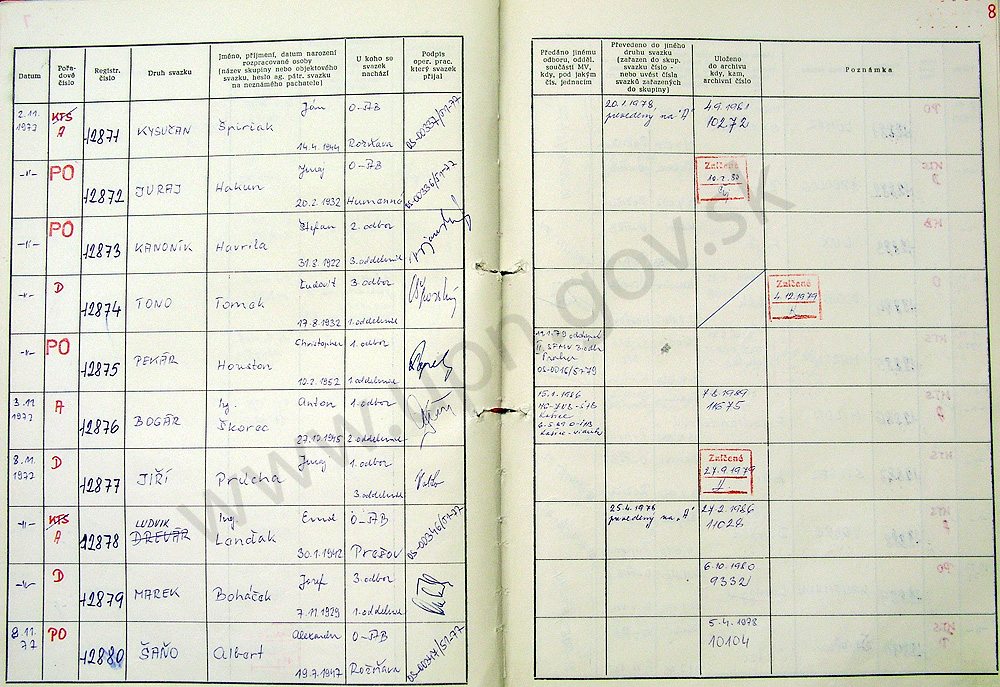 8
Datum
Pořadové číslo
Registr. číslo
Druh svazku
Jméno, příjmení, datum narození rozpracované osoby (název skupiny nebo objektového svazku, heslo ag. pátr. svazku na neznámého pachatele)
U koho se svazek nachází
Podpis oper. prac. který svazek přijal
Předáno jinému odboru, odděl. součásti MV, kdy, pod jakým čís. jednacím
Převedeno do jiného druhu svazku (zařazen do skup. svazku číslo - nebo uvést čísla svazků zařazených do skupiny)
Uloženo do archivu kdy, kam, archivní číslo
Poznámka
2.11. 1977 KTS A 12871 KYSUČAN Ján Špirčiak 14.4.1944 O-ŠtB Rožňava OS-00337/01-77
20.1.1978, prevedený na "A"
4.9.1981 10272
-"- PO 12872 JURAJ Juraj Hakun 20.2.1932 O-ŠtB Humenné OS-00336/01-77
Zničené
-"- PO 12873 KANONIK Štefan Havrila 31.8.1922 2. odbor 3. oddelenie
-"- D 12874 TONO Ľudovít Tomek 17.8.1932 3. odbor 1. oddelenie
Zničené 4.12.1979
-"- PO 12875 PEKÁR Christopher Houston 10.2.1952 1. odbor 1. oddelenie
OS-0016/51-79
3.11. 1977 A 12876 BOGÁR Ing. Anton Škorec 27.10.1945 1. odbor 2. oddelenie
15.1.1986
7.8.1989 11675
8.11. 1977 D 12877 JIŘÍ Juraj Průcha 1. odbor 3. oddelenie
Zničené 27.9.1979
-"- KTS A 12878 LUDVIK DREVÁR Ing. Emil Lenďak 30.1.1942 O-ŠtB Prešov OS-00346/01-77
25.4.1978 prevedený na "A"
27.2.1986 11028
-"- D 12879 MAREK Jozef Boháček 7.11.1929 3. odbor 1. oddelenie
6.10.1980 9332
8.11. 77 PO 12880 ŠAŇO Alexander Albert 19.7.1947 O-ŠtB Rožňava OS-00347/51-77
5.4.1978 10104
www.upn.gov.sk